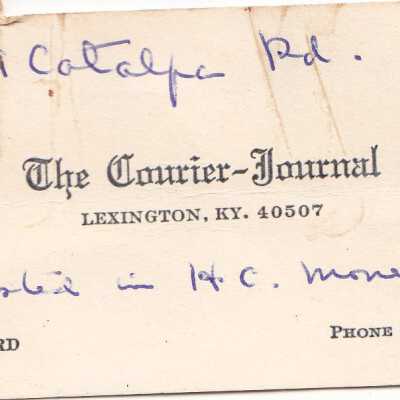 Catalpa Rd.
The Courier-Journal
LEXINGTON, KY. 40507
in H.C.
RD
PHONE